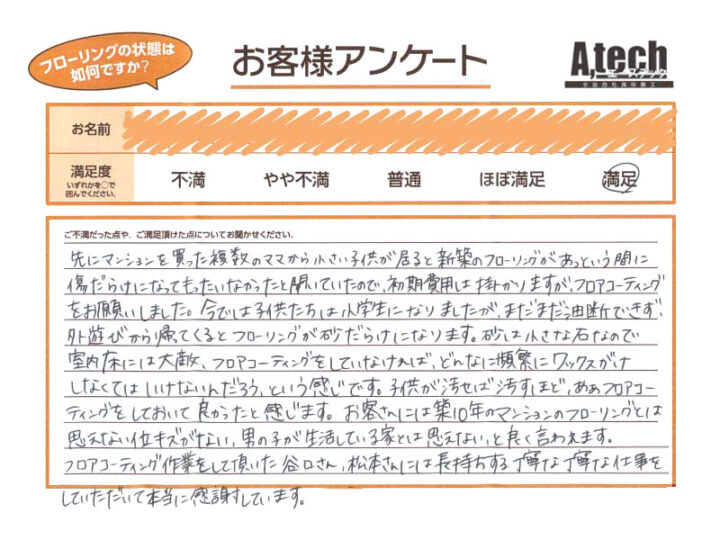 フローリングの状態は
如何ですか?
お客様アンケート
A,tech
エーステック
お名前
満足度
いずれかを○で
囲んでください。
不満 やや不満 普通 ほぼ満足 満足
ご不満だった点や、ご満足頂けた点についてお聞かせください。
先にマンションを買った複数のママから小さい子供が居ると新築のフローリングがあっという間に
傷だらけになってもったいなかったと聞いていたので、初期費用は掛かりますが、フロアコーティング
をお願いしました。今では子供たちは小学生になりましたが、まだまだ油断できず、
外遊びから帰ってくるとフローリングが砂だらけになります。砂は小さな石なので
室内床には大敵、フロアコーティングをしていなければ、どんなに頻繁にワックスがけ
しなくてはいけないんだろう、という感じです。子供が汚せば汚すほど、ああフロアコー
ティングをしておいて良かったと感じます。お客さんには築10年のマンションのフローリングとは
思えない位キズがない、男の子が生活している家とは思えない、と良く言われます。
フロアコーティング作業をして頂いた谷口さん、松本さんには長持ちする丁寧な丁寧な仕事を
していただいて本当に感謝しています。